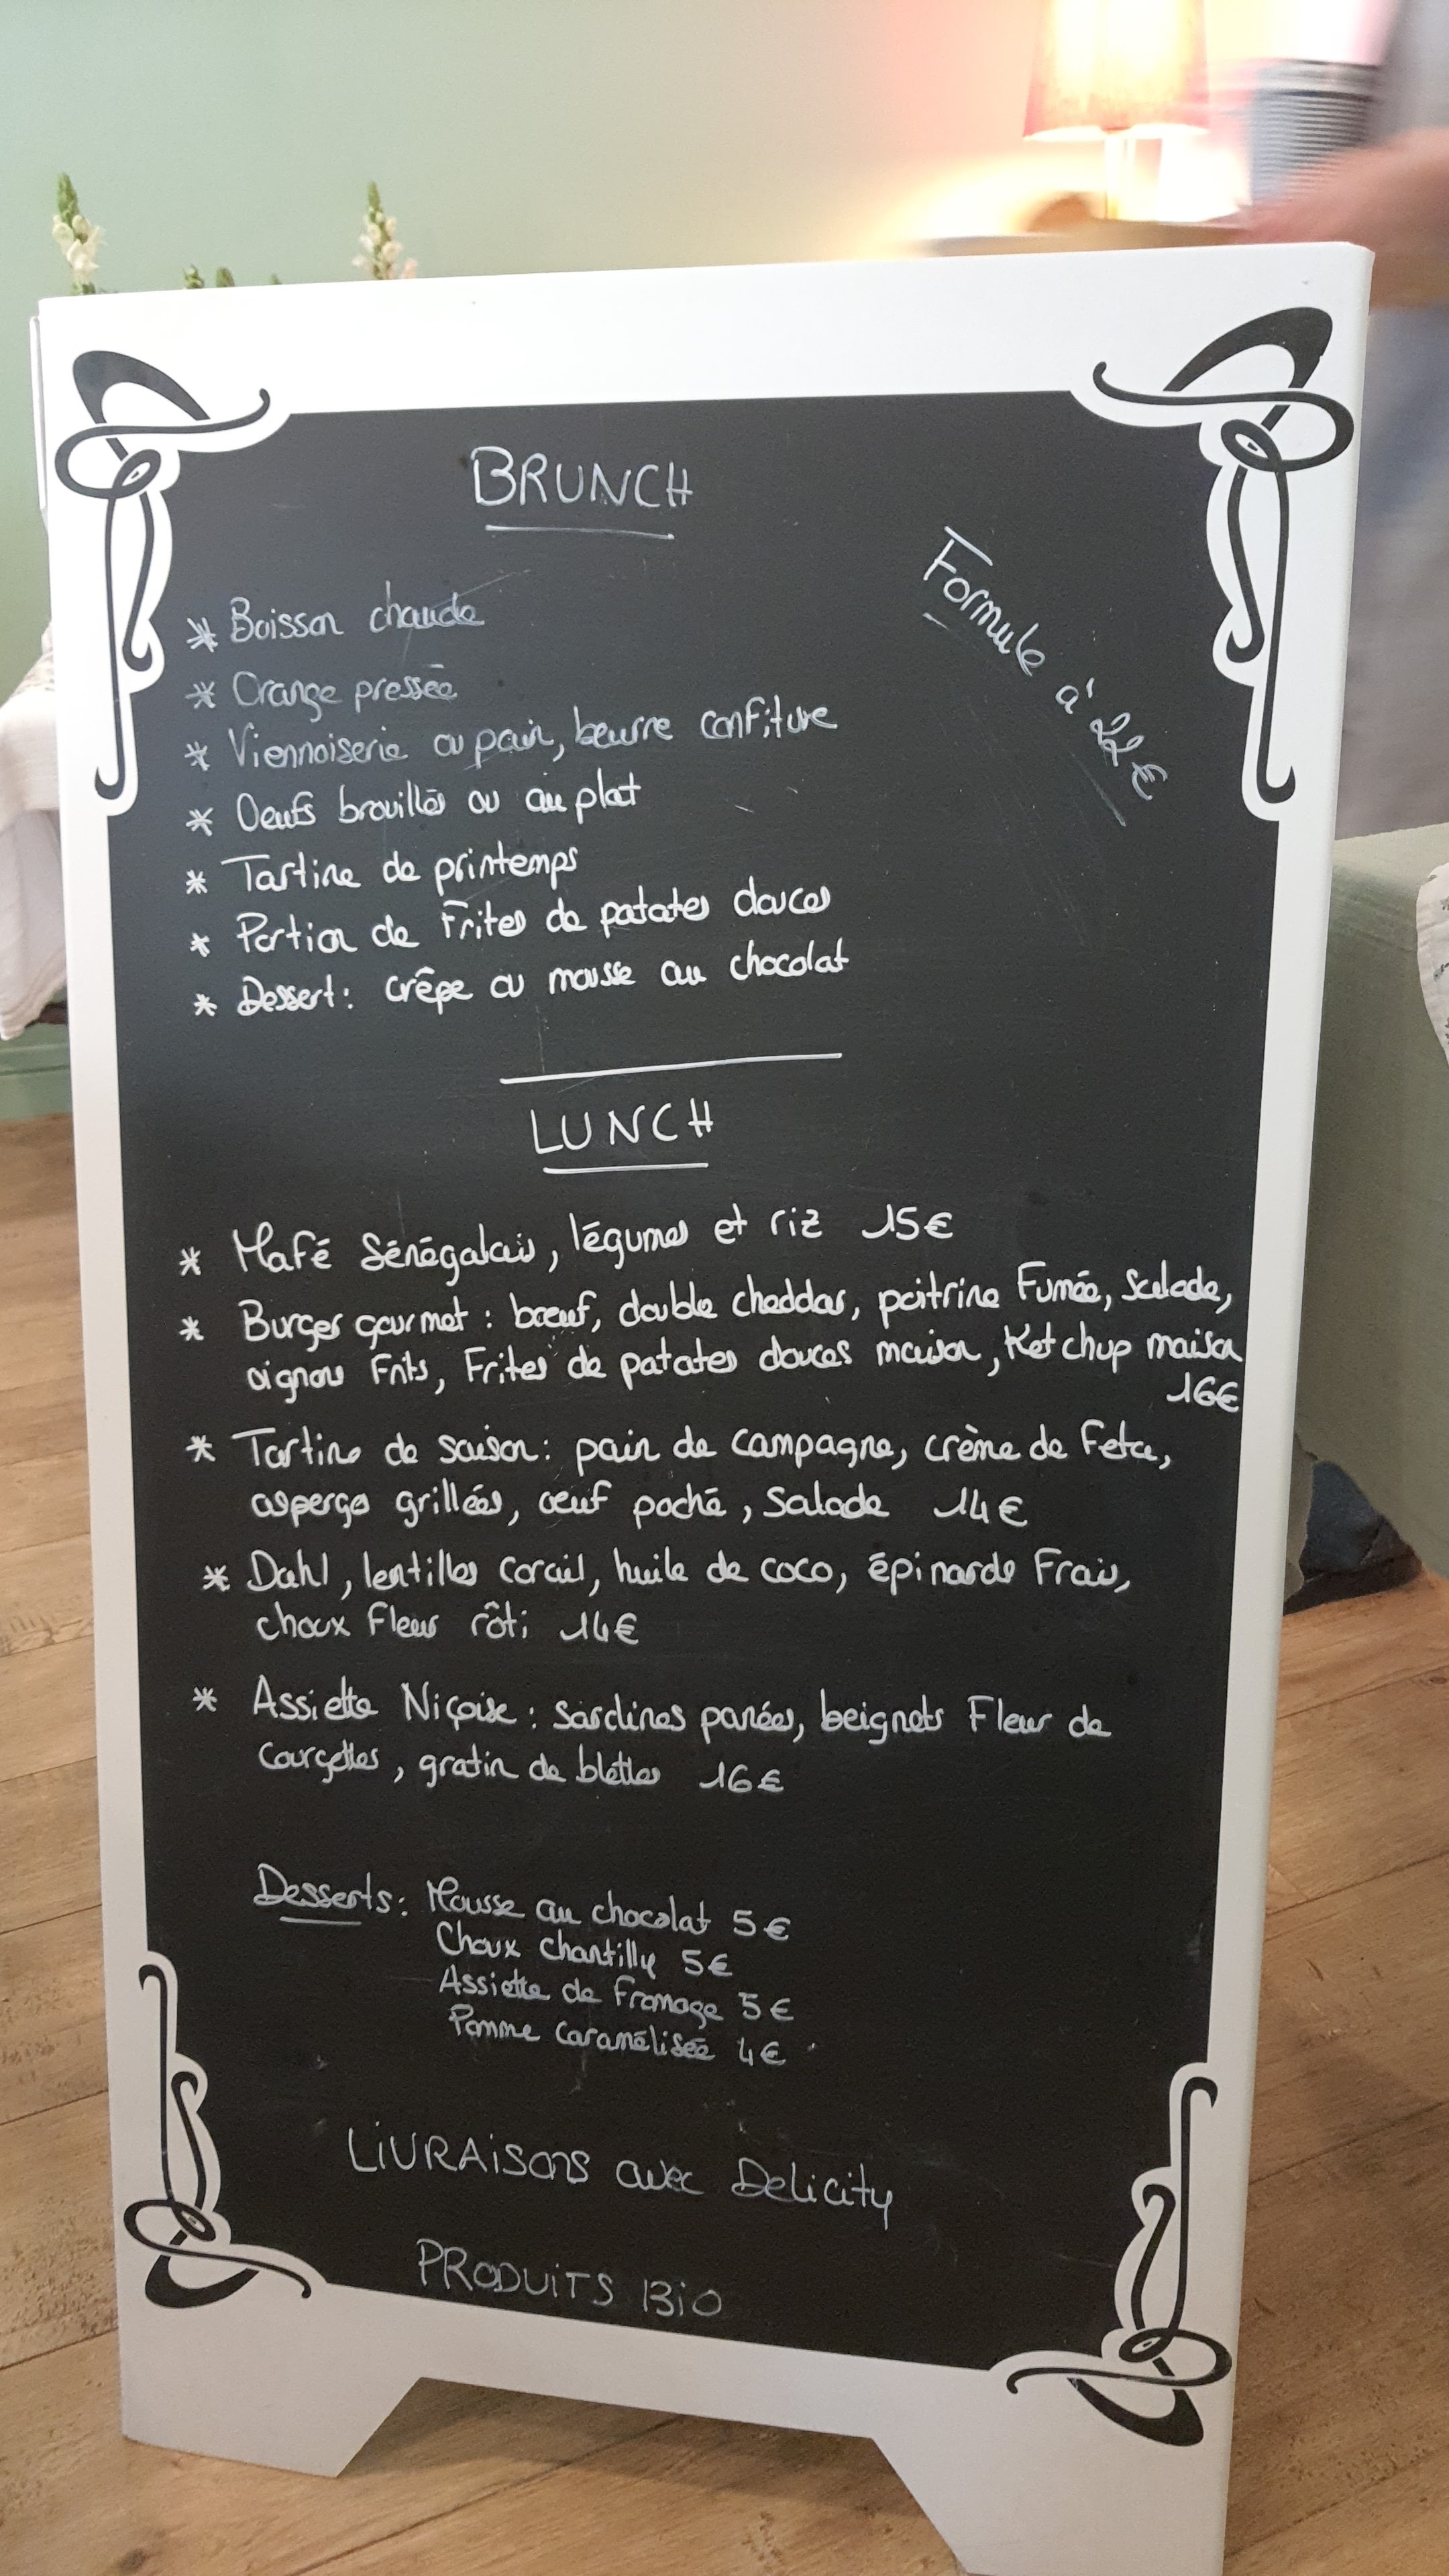 BRUNCH
Formule à 22€
* Boisson chaude
* Orange pressée
* Viennoiserie ou pain, beurre confiture
* Oeufs brouillés ou au plat
* Tartine de printemps
* Portion de Frites de patates douces
* Dessert: crêpe ou mousse au chocolat
LUNCH
* Mafé Sénégalais, légumes et riz 15€
* Burger gourmet : bœuf, double cheddar, poitrine Fumée, Salade,
oignons Frits, Frites de patates douces maison, Ketchup maison
16€
* Tartine de saison: pain de campagne, crème de Feta,
asperges grillées, œuf poché, Salade 14€
* Dahl, lentilles corail, huile de coco, épinards Frais,
choux Fleur rôti 14€
* Assiette Niçoise : sardines panées, beignets Fleur de
courgettes, gratin de blettes 16€
Desserts: Mousse au chocolat 5€
Choux chantilly 5€
Assiette de fromage 5€
Pomme caramélisée 4€
LIVRAISONS avec Delicity
PRODUITS BIO